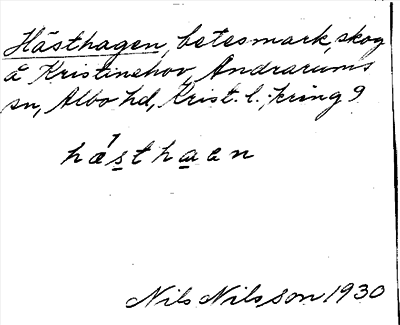 Hästhagen, betesmark, skog
å Kristinehov, Andrarums
sn, Albo hd, Krist. l. kring 9
hæ´sthaan
Nils Nilsson 1930